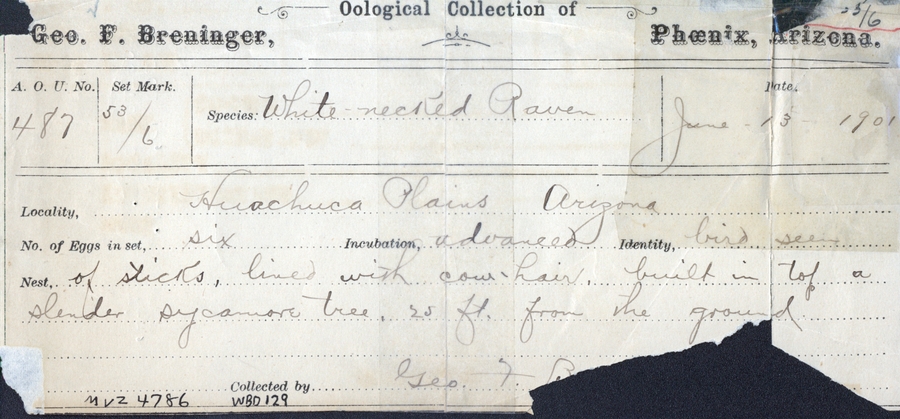 Oological Collection of
55/6
Geo. F. Breninger, Phœnix, Arizona.
A. O. U. No. Set Mark. Date.
487 53/6 Species: White-necked Raven June - 13 - 1901
Locality, Huachuca Plains Arizona
No. of Eggs in set, six Incubation, advanced Identity, bird seen
Nest, of sticks, lined with cow-hair, built in top a
slender sycamore tree, 25 ft. from the ground
Collected by Geo. F. B
MVZ 4786 WBD129